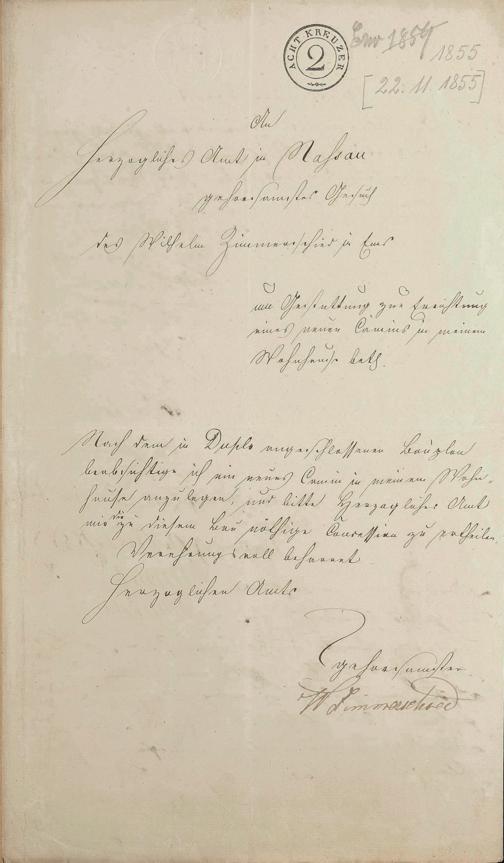 ACHT KREUZER
2
1855
[22. 11. 1855]
An
Herzogliches Amt in Nassau
gehorsamstes Gesuch
des Wilhelm Zimmerschied in Ems
um Gestattung zur Errichtung
eines neuen Camins in meinem
Wohnhause betr.
Nach dem in Duplo angeschlossenen Bauplan
beabsichtige ich ein neues Camin in meinem Wohn-
hause anzulegen, und bitte Herzogliches Amt
mir die zu diesem Bau nöthige Concession zu ertheilen.
Verehrungsvoll beharret
Herzoglichen Amts
gehorsamster
W Zimmerschied